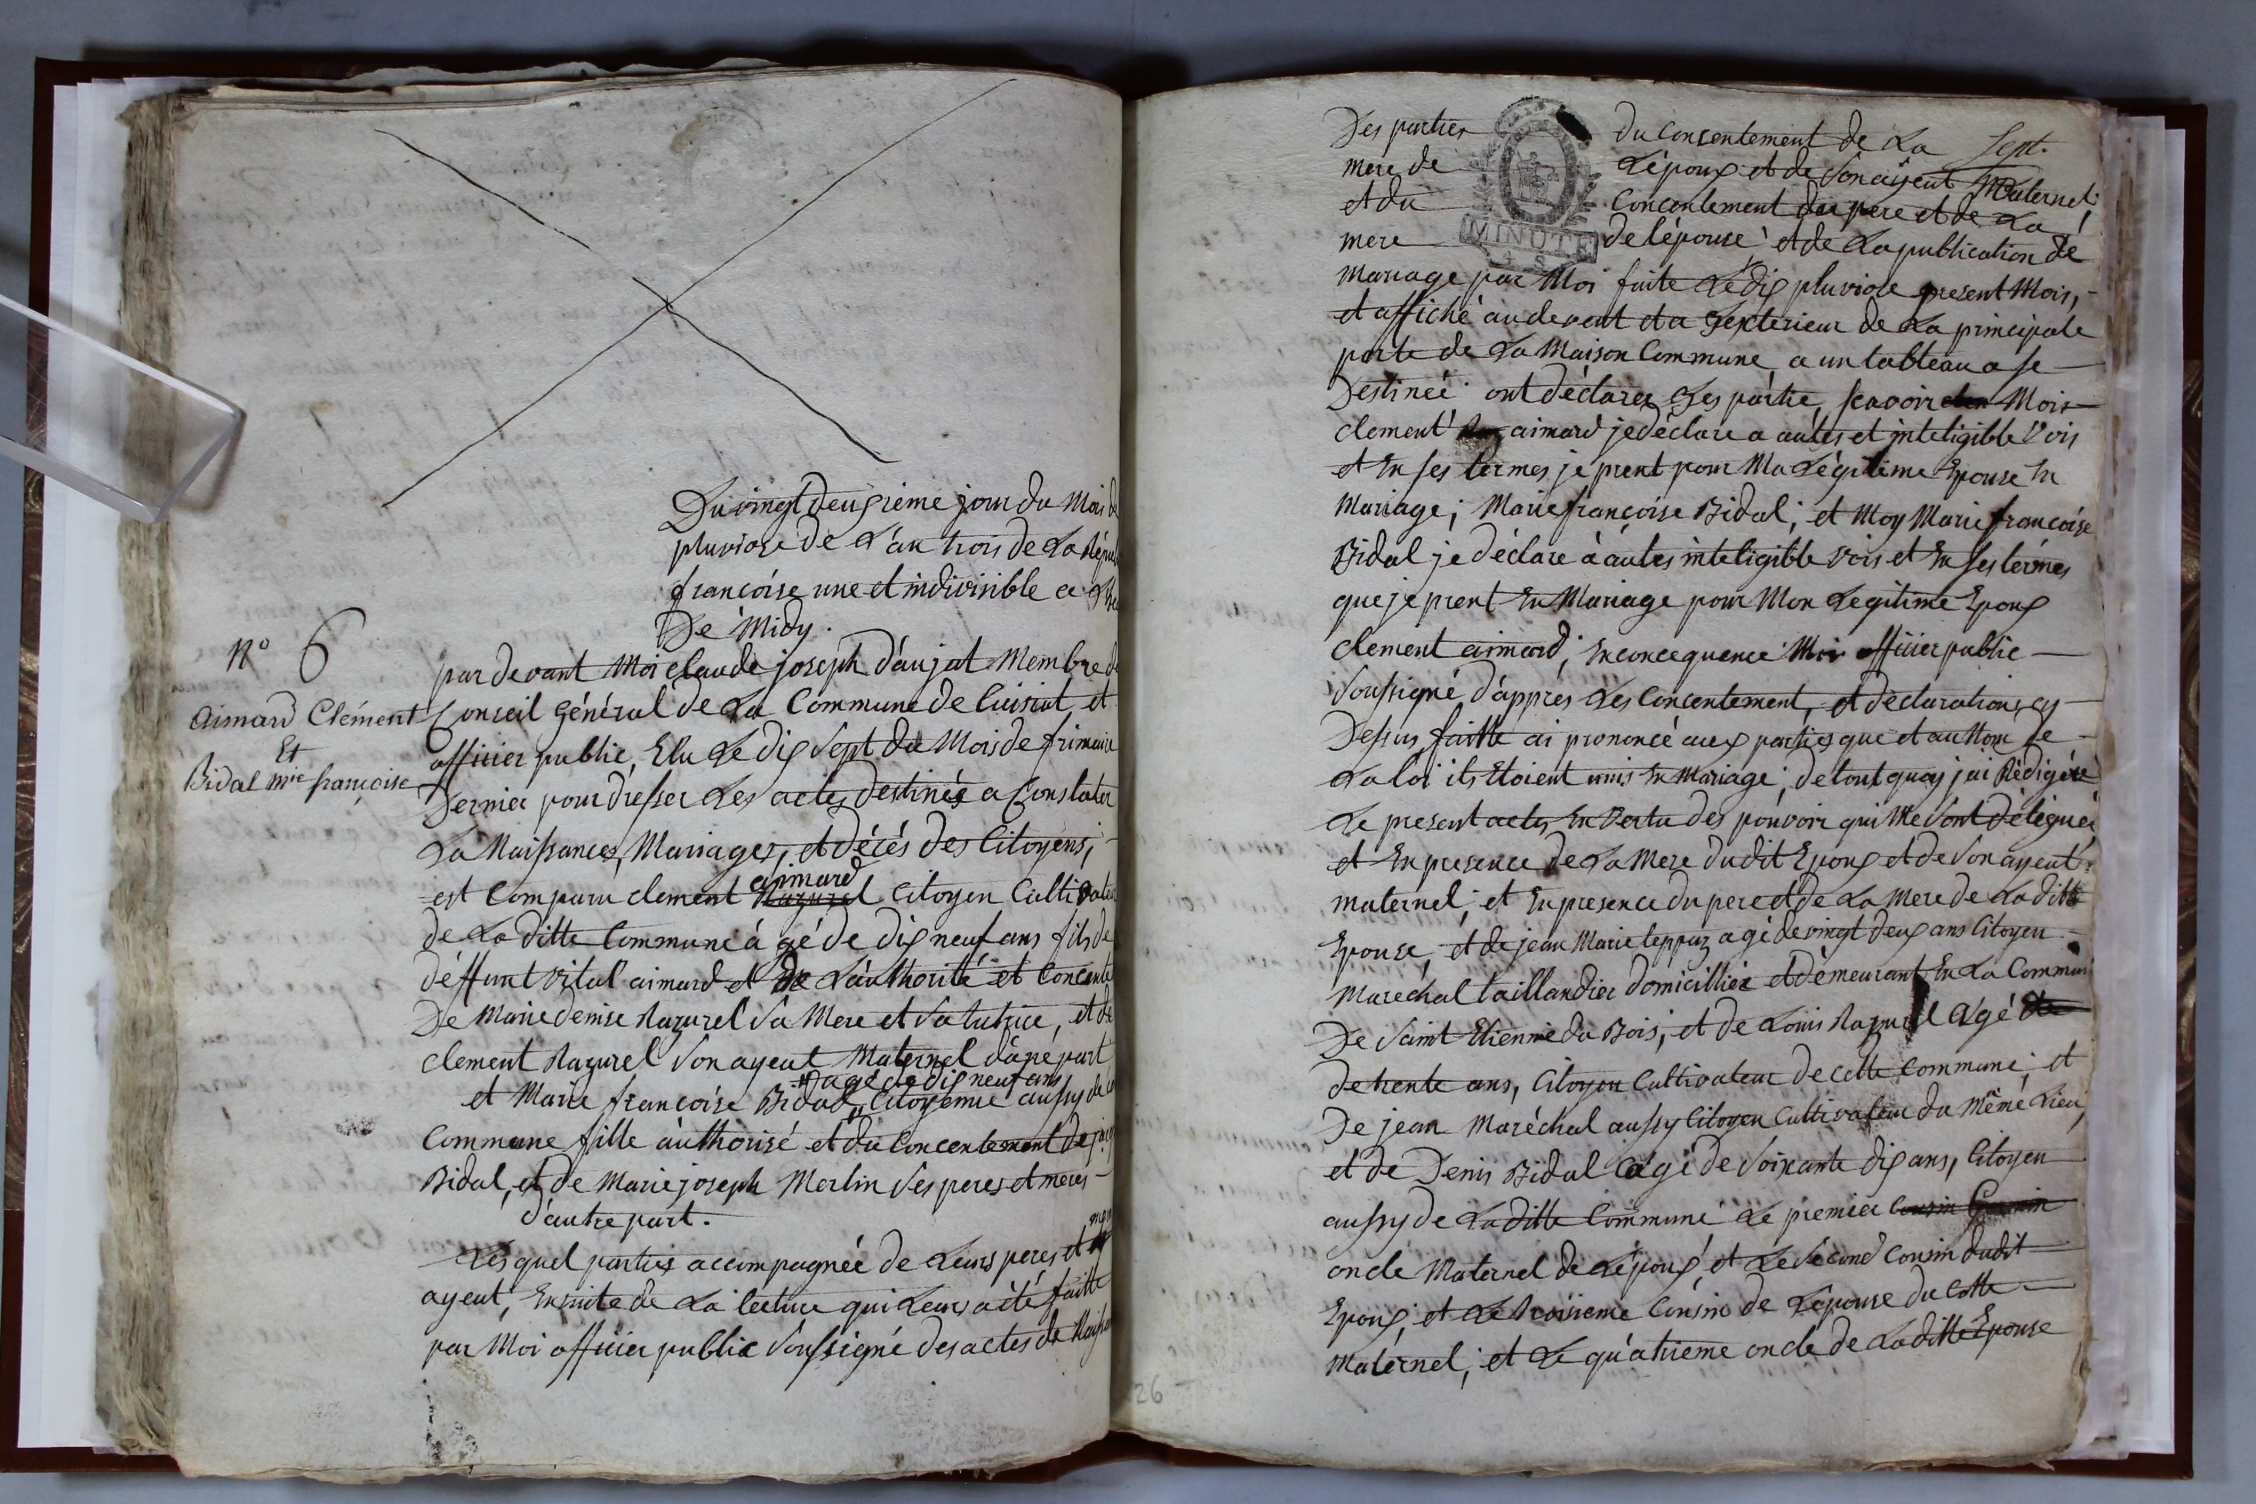 Du vingt deuxième jour du Mois de
pluviose de L'an trois de La Répu
françoise une et indivisible a
De Midy.
N° 6
Aimard Clément
Et
Bidal Mie françoise
par devant Moi claude joseph d'aujat Membre de
Conseil Général de La Commune de Cuisiat et
officier public, Elu Le dix Sept du Mois de frimaire
Dernier pour dresser Les actes destinés a Constater
La Naissances, Mariages, et décés des Citoyens,
aimard
est Comparu clement Razurel Citoyen Cultivateur
de La ditte Commune âgé de dix neuf ans fils de
déffunt vital aimard et de L'authorité et Concente
De Marie denise Razurel Sa Mere et Sa tutrice, et de
clement Razurel Son ayeut Maternel d'une part
agé de dix neuf ans
et Marie françoise Bidal Citoyenne aussy de
Commune fille authorisé et du Concentement de
Bidal, et de Marie joseph Merlin Ses peres et meres
d'autre part.
Lésquel parties accompagnée de Leurs peres et mere
ayeut, Ensuite de La lecture qui Leurs a été faitte
par Moi officier public Soussigné des actes de Naissan
Sept.
Des parties du Consentement de La
mere de L'époux et de Son ayeut Maternel
et du Concentement du pere et de La
mere de l'épouse et de La publication de
MINUTE
mariage par Moi faite Le dix pluviose present Mois,
et affiché au devant et a L'exterieur de La principale
porte de La Maison Commune a un tableau a se
Destinée ont déclarer Les partie, scavoir Moi
clement aimard je déclare a autes et inteligible Vois
et En ses termes je prent pour Ma Légitime Epouse En
Mariage, Marie françoise Bidal; et Moy Marie françoise
Bidal je déclare à autes inteligible vois et En ses térmes
que je prent En Mariage pour Mon Legitime Epoux
clement aimard; En concequence Moi officier public
Soussigné d'apprés Les Concentement, et declarations cy
Dessus faitte ai prononcé aux parties que et au Nom de
La loi ils Etoient unis En Mariage; de tout quoy j'ai Rédigéré
Le present actes En Vertu des pouvoir qui Me Sont délégués
et En presence de La Mere dudit Epoux et de Son ayeut
maternel; et En presence du pere et de La Mere de La ditte
Epouse, et de jean Marie teppaz agé de vingt deux ans Citoyen
Marechal taillandier domicillier et demeurant En La Commune
De Saint Etienne du Bois; et de Louis Razurel âgé de
de trente ans, Citoyen Cultivateur de cette Commune, et
De jean Maréchal aussy Citoyen Cultivateur du Même Lieu,
et de Denis Bidal âgé de Soixante dix ans, Citoyen
aussy de La ditte Commune Le premier Cousin Germain
oncle Maternel de L'époux, et Le Second Cousin dudit
Epoux; et Le troisieme Cousin de L'épouse du Cotté
Maternel; et Le quatrieme oncle de La ditte Epouse
26